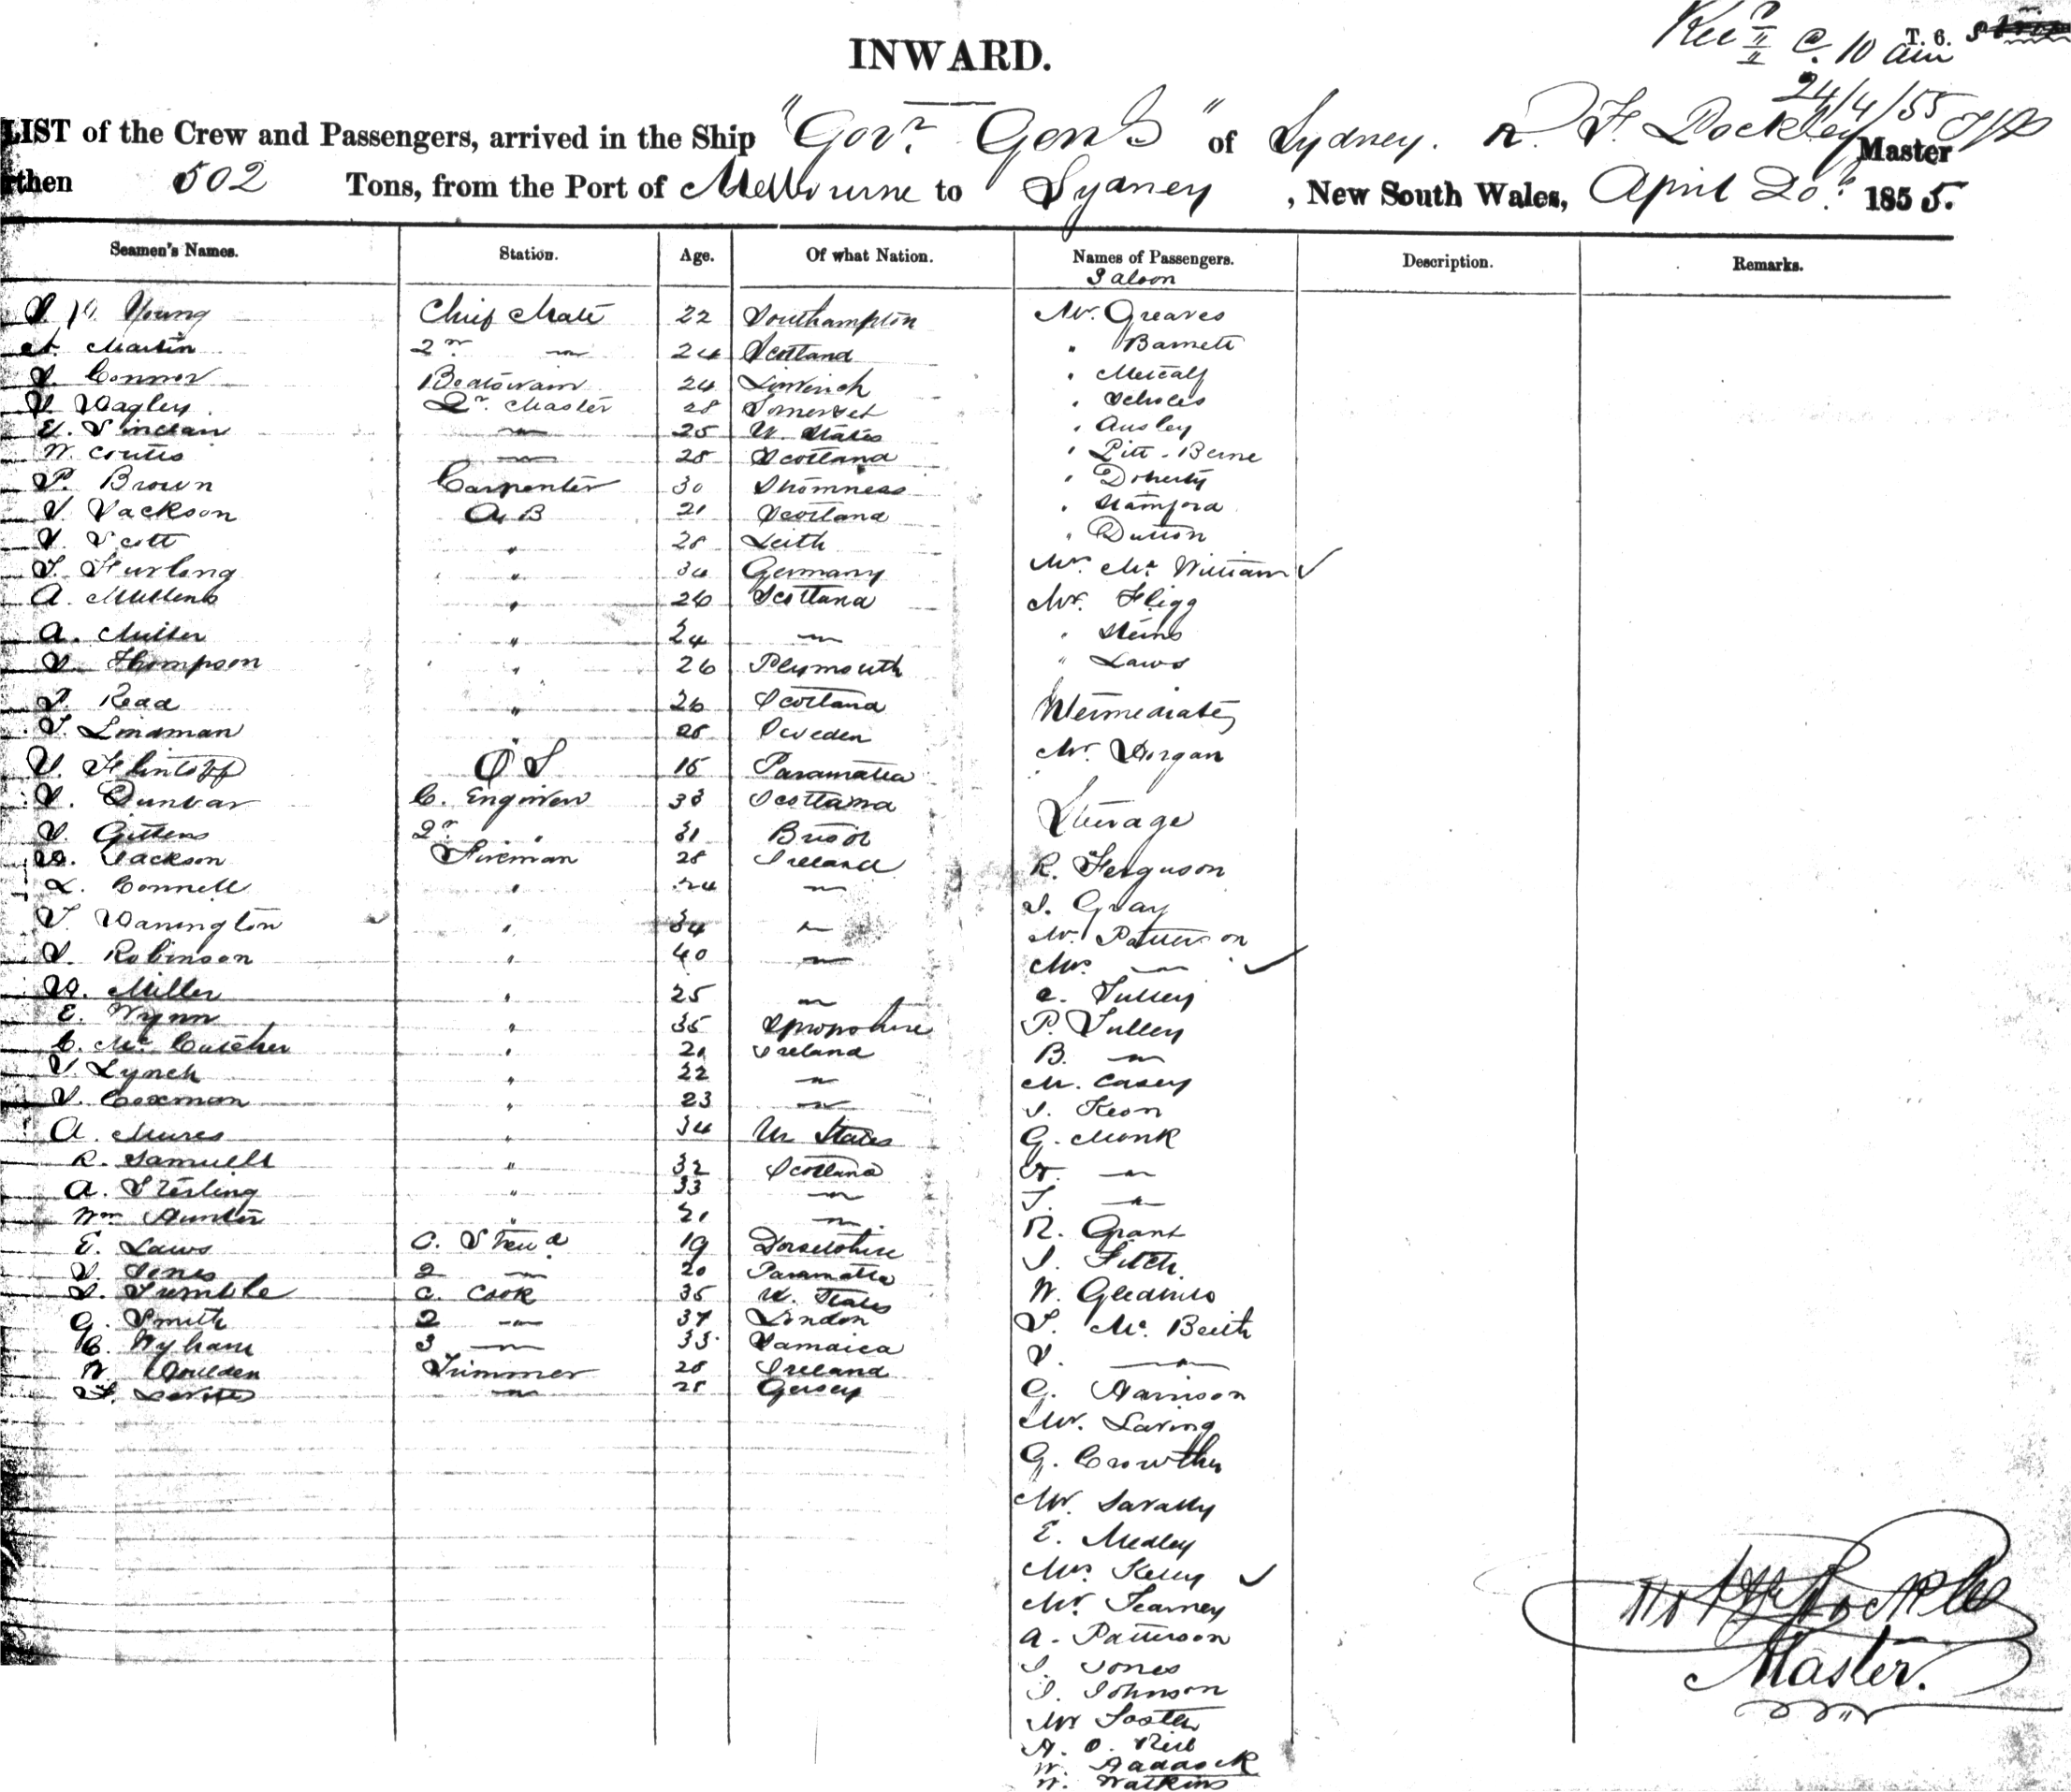 T. 6.
@ 10 am
24/4/55
INWARD.
LIST of the Crew and Passengers, arrived in the Ship "Govr. Genl" of Sydney. R. F. Pockley Master
then 502 Tons, from the Port of Melbourne to Sydney, New South Wales, April 20th 1855.
Seamen's Names. Station. Age. Of what Nation. Names of Passengers. Description. Remarks.
Saloon
Young Chief Mate 22 Southampton Mr. Greaves
Martin 2nd " 24 Scotland " Barnett
J. Connor Boatswain 24 Limerick " Metcalf
J. Wagley Qr. Master 28 Somerset " Scholes
E. Sinclair " 25 U. States " Ansley
W. Coutts " 28 Scotland " Pitt-Berne
P. Brown Carpenter 30 Stromness " Doherty
J. Jackson A B 21 Scotland " Stamford
J. Scott " 28 Leith " Dutton
T. Furlong " 34 Germany Mrs. Mc William ✓
A. Mullens " 26 Scotland Mr. Fligg
A. Miller " 24 " " Steins
J. Thompson " 26 Plymouth " Laws
J. Read " 26 Scotland Intermediate
T. Lindman 28 Sweden
Mr. Horgan
J. Flintoff O S 15 Paramatta
J. Dunbar C. Engineer 38 Scotland Steerage
J. Gittens 2nd " 31 Bristol
W. Jackson Fireman 28 Ireland R. Ferguson
L. Connell " 24 " J. Gray
T. Wanington " 34 " W. Patterson
J. Robinson " 40 " Mrs. " ✓
W. Miller " 25 " C. Tulley
E. Wynn " 35 Shropshire P. Tulley
C. Mc Cutcher " 21 Ireland B. "
J. Lynch " 22 " M. Casey
J. Coxman " 23 " J. Keon
A. Mures " 34 Un States G. Monk
R. Samuells " 32 Scotland "
A. Sterling " 33 " T. "
Wm Hunter " 21 " R. Grant
E. Laws C. Stewd 19 Dorsetshire J. Fitch.
J. Jones 2 " 20 Paramatta
J. Tumble C. Cook 35 U. States W. Gledhills
G. Smith 2 " 37 London T. Mc. Beith
C. Wyham 3 " 33 Jamaica J. "
W. Goulden Trimmer 28 Ireland G. Harrison
28 Gersey
Mr. Laring
G. Crowther
Mr. Savally
E. Medley
Mrs Kelly ✓
Mr. Kearney
A. Patterson
J. Jones
J. Johnson
Mr Foster
W. Haddock
W. Watkins
Master.